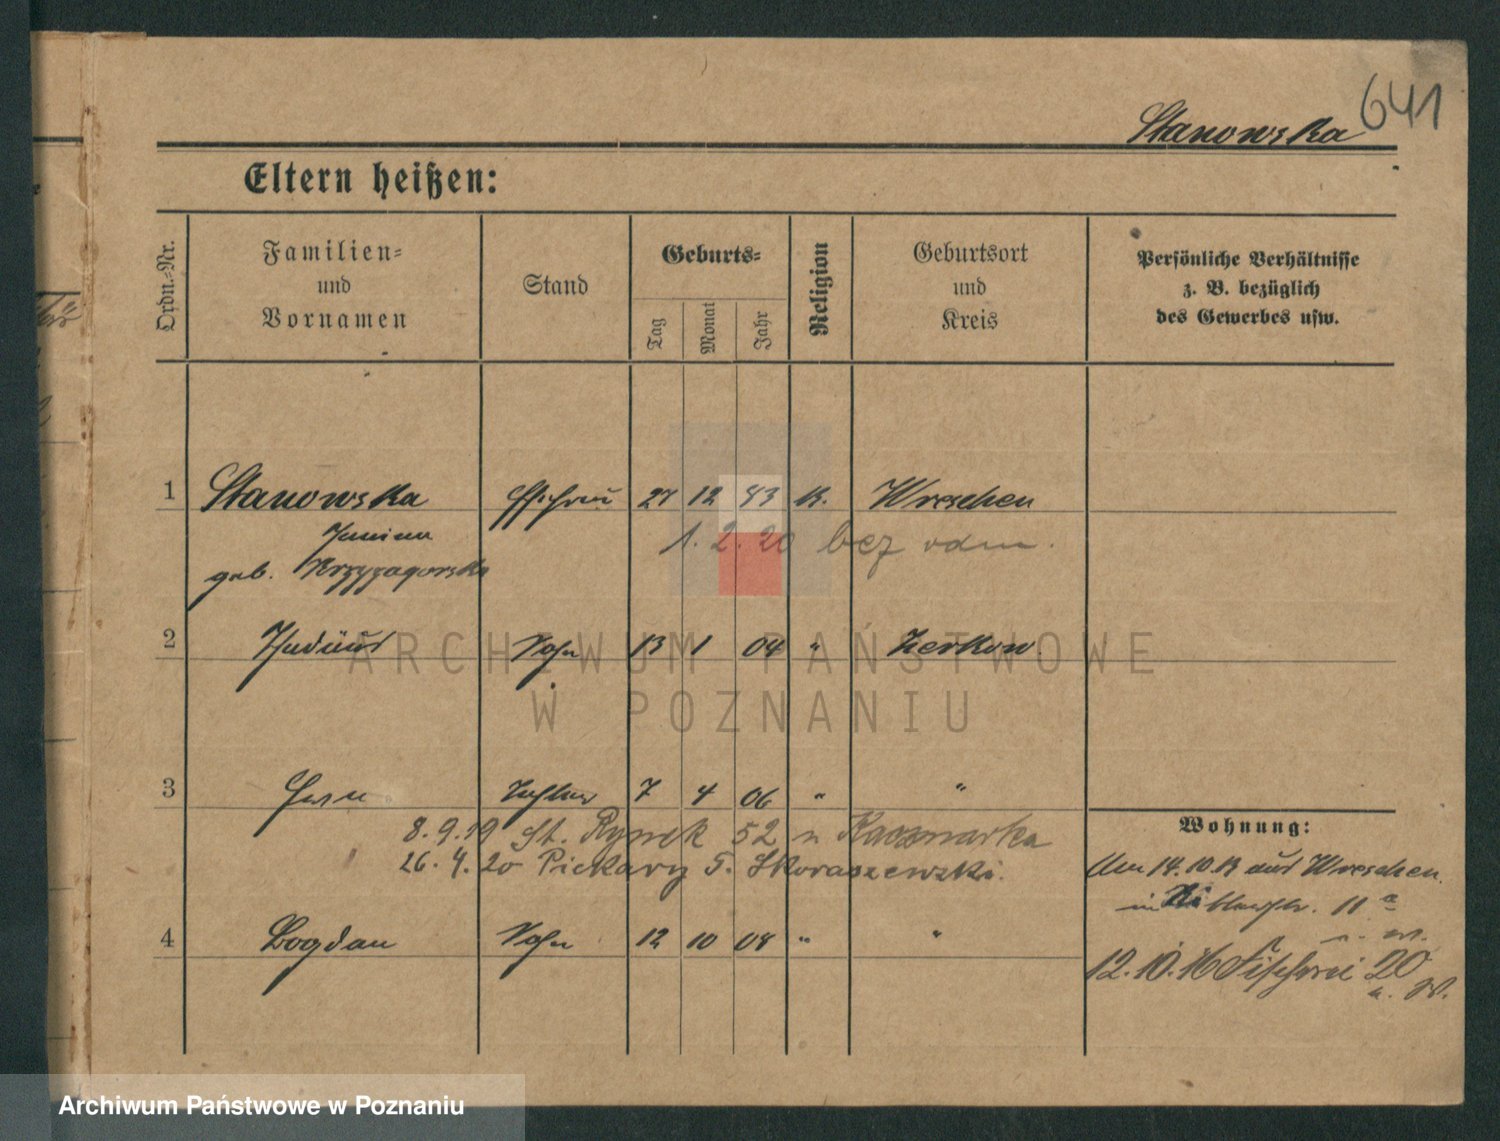 641
Stanowska
Eltern heißen:
Ordn.-Nr.
Familien-
und
Vornamen
Stand
Geburts-
Tag
Monat
Jahr
Religion
Geburtsort
und
Kreis
Persönliche Verhältnisse
z. B. bezüglich
des Gewerbes usw.
1 Stanowska 27 12 83 K. Wreschen
Janina
1. 2. 20 bez odm.
geb. Krzyzagorska
2 Sohn 13 1 04 " Zerkow.
3 Tochter 7 4 06 " "
8.9.19 St. Rynek 52 u Kaczmarka
26.4.20 Piekary 5. Skoraszewski.
4 Bogdan Sohn 12 10 08 " "
Wohnung:
Um 14.10.13 aus Wreschen.
in 11 a
12.10.16 Fischerei 20
ARCHIWUM PAŃSTWOWE
W POZNANIU
Archiwum Państwowe w Poznaniu